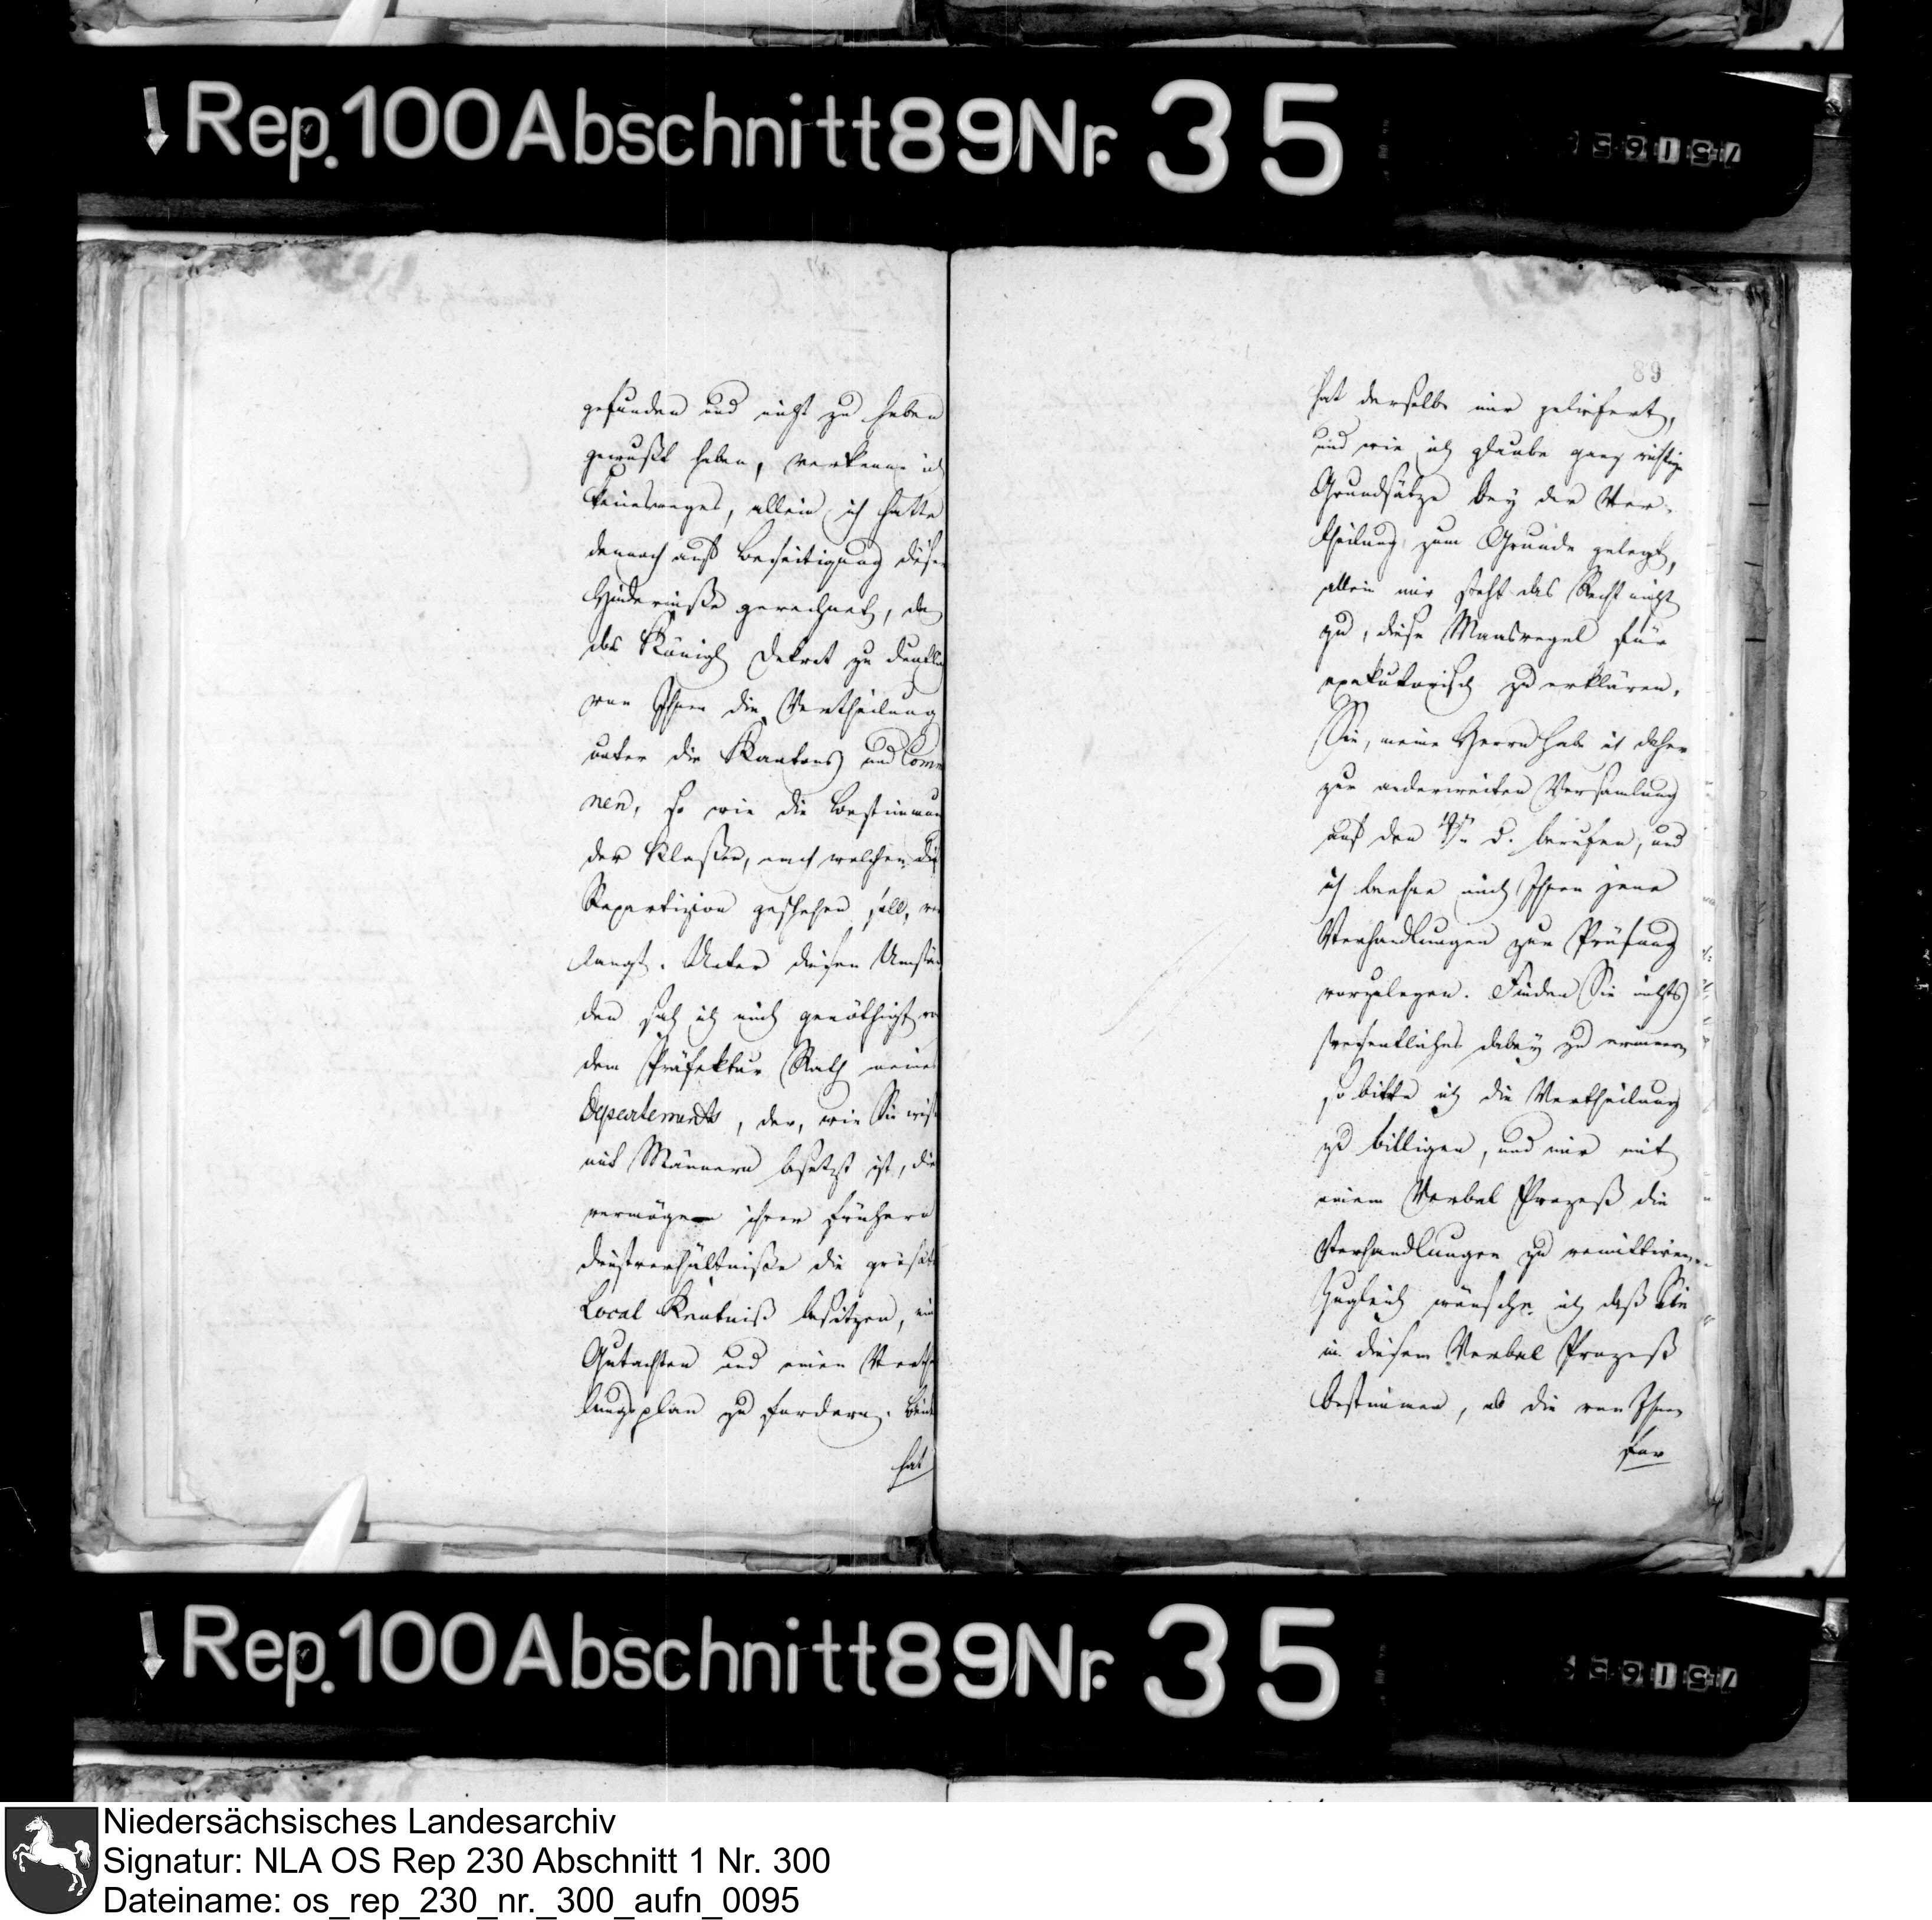 Rep. 100 Abschnitt 89 Nr. 35
gefunden und nicht zu heben
gewußt haben, verkenne ich
keinesweges, allein ich hatte
dennoch auf Beseitigung dieser
Hinderniße gerechnet, da
das Königl Dekret zu deutlich
von Ihnen die Vertheilung
unter die Kantons und Comu
nen, so wie die Bestimmung
der Klaßen, nach welchen die
Repartizion geschehen soll, ver
langt. Unter diesen Umstän
den sah ich mich genöthigt von
dem Präfektur Rath meines
Departements, der, wie Sie wißen
mit Männern besetzt ist, die
vermöge ihrer frühern
Dienstverhältniße die größte
Local Kentniß besitzen, ein
Gutachten und einen Verthei
lungsplan zu fordern. Beides
hat
89
hat derselbe mir geliefert,
und wie ich glaube ganz richtige
Grundsätze bey der Ver-
theilung zum Grunde gelegt,
allein mir steht das Recht nicht
zu, diese Maasregel für
exekutorisch zu erklären.
Sie, meine Herrn habe ich daher
zur anderweiten Versamlung
auf den d. berufen, und
ich beehre mich Ihnen jene
Verhandlungen zur Prüfung
vorzulegen. Finden Sie nichts
wesentliches dabey zu erinnern
so bitte ich die Vertheilung
zu billigen, und mir mit
einem Verbal Prozeß die
Verhandlungen zu remittiren.
Zugleich wünsche ich daß Sie
in diesem Verbal Prozeß
bestimmen, ob die von Ihnen
for
Rep. 100 Abschnitt 89 Nr. 35
Niedersächsisches Landesarchiv
Signatur: NLA OS Rep 230 Abschnitt 1 Nr. 300
Dateiname: os_rep_230_nr._300_aufn_0095